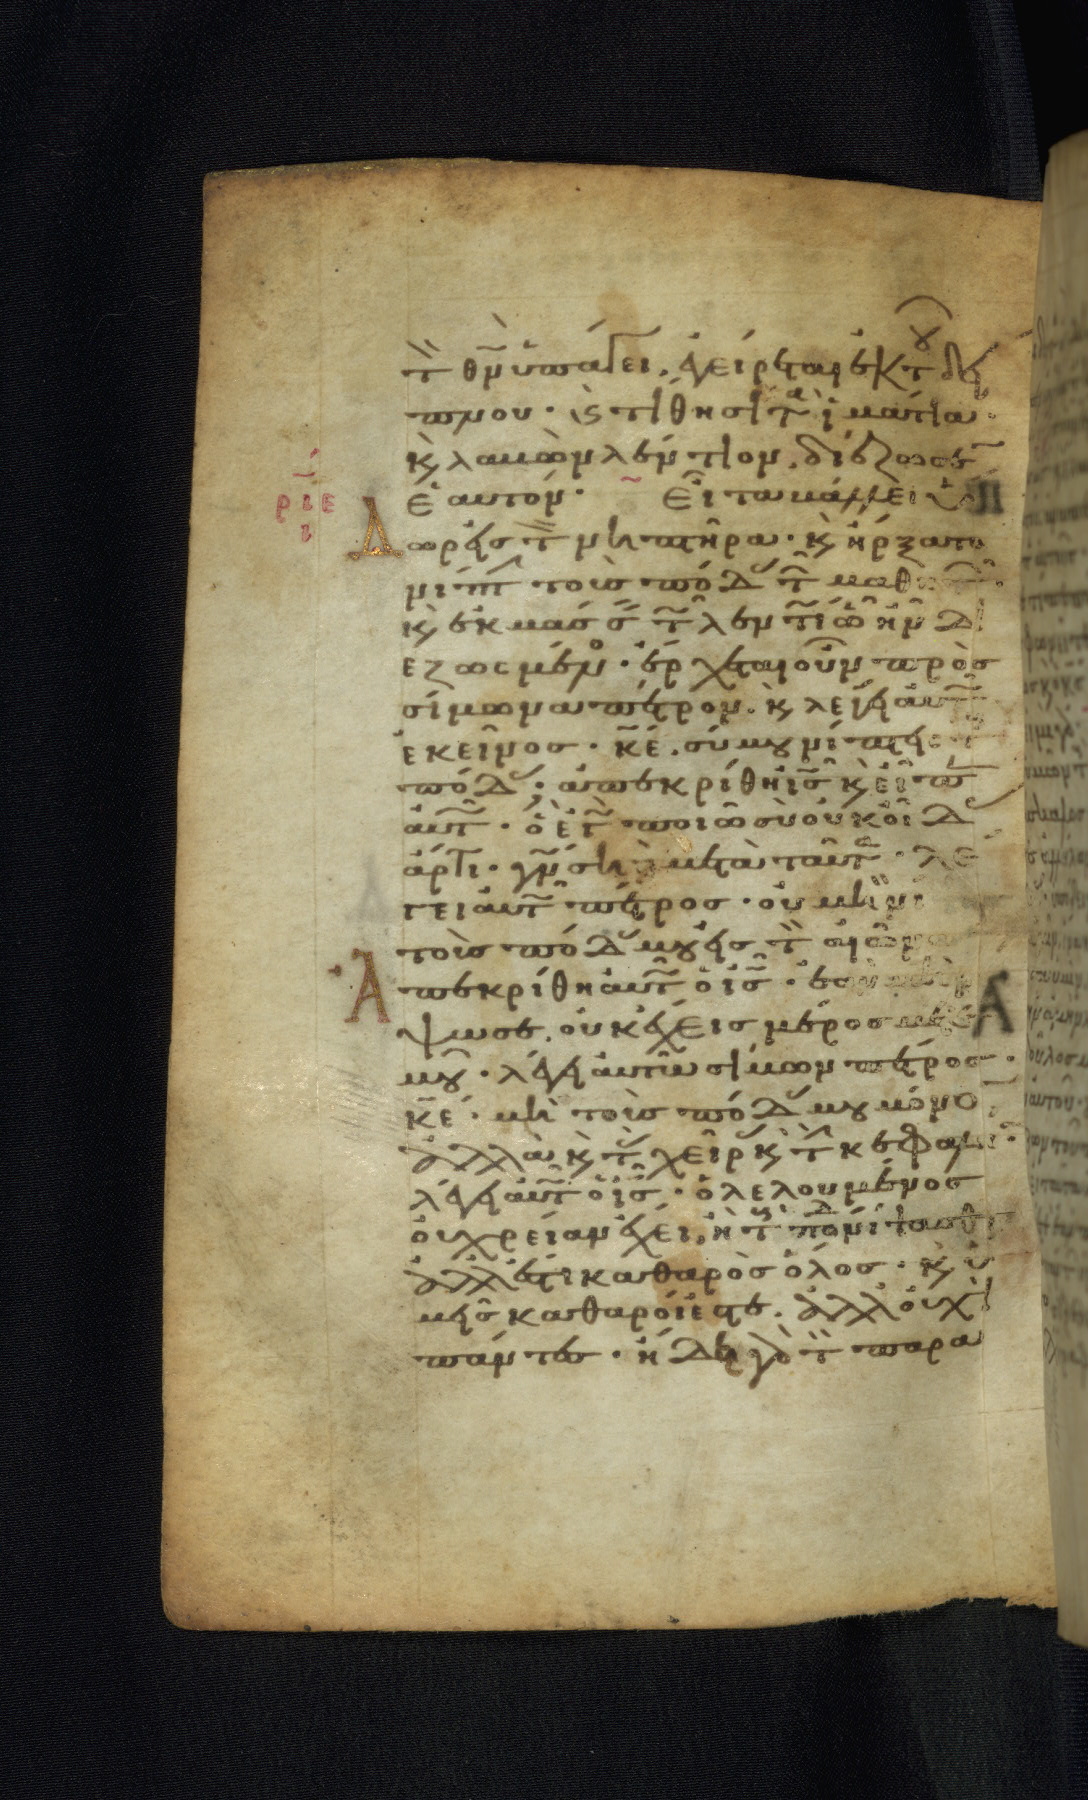 τὸν θ̅ν ὑπάγει. ἐγείρεται ἐκ τοῦ δεί
πνου· καὶ τίθησι τὰ ἱμάτια·
καὶ λαβὼν λέντιον, διέζωσεν
ἑαυτόν· Εἶτα βάλλει ὕ
ριε
ι
Δωρ εἰς τὸν νιπτῆρα· καὶ ἤρξατο
νίπτειν τοὺς πόδας τῶν μαθητῶν
καὶ ἐκμάσσειν τῷ λεντίῳ ᾧ ἦν δι
εζωσμένος· ἔρχεται οὖν πρὸς
σίμωνα πέτρον. καὶ λέγει αὐτῷ
ἐκεῖνος· κ̅ε̅. σύ μου νίπτεις τοὺς
πόδας; ἀπεκρίθη ι̅ς̅ καὶ εἶπεν
αὐτῷ· ὃ ἐγὼ ποιῶ σὺ οὐκ οἶδας
ἄρτι· γνώσῃ δὲ μετὰ ταῦτα· λέ
γει αὐτῷ πέτρος· οὐ μὴ
τοὺς πόδας μου εἰς τὸν αἰῶνα
Ἀπεκρίθη αὐτῷ ὁ ι̅ς̅· ἐὰν μὴ
ψω σε, οὐκ ἔχεις μέρος μετ ἐ
μοῦ· λέγει αὐτῷ σίμων πέτρος·
κ̅ε̅· μὴ τοὺς πόδας μου μόνον
ἀλλὰ καὶ τὰς χεῖρας καὶ τὴν κεφαλήν
λέγει αὐτῷ ὁ ι̅ς̅· ὁ λελουμένος
οὐ χρείαν ἔχει, ἢ τοὺς πόδας νίψασθαι
ἀλλ ἔστι καθαρὸς ὅλος· καὶ ὑ
μεῖς καθαροί ἐστε. ἀλλ οὐχὶ
πάντες· ᾔδει γὰρ τὸν παρα